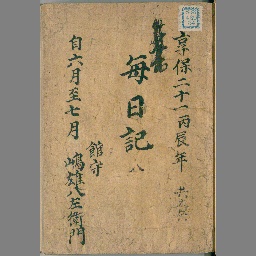 享保二十一丙辰年
毎日記
八
自六月至七月
館守
嶋雄八左衛門